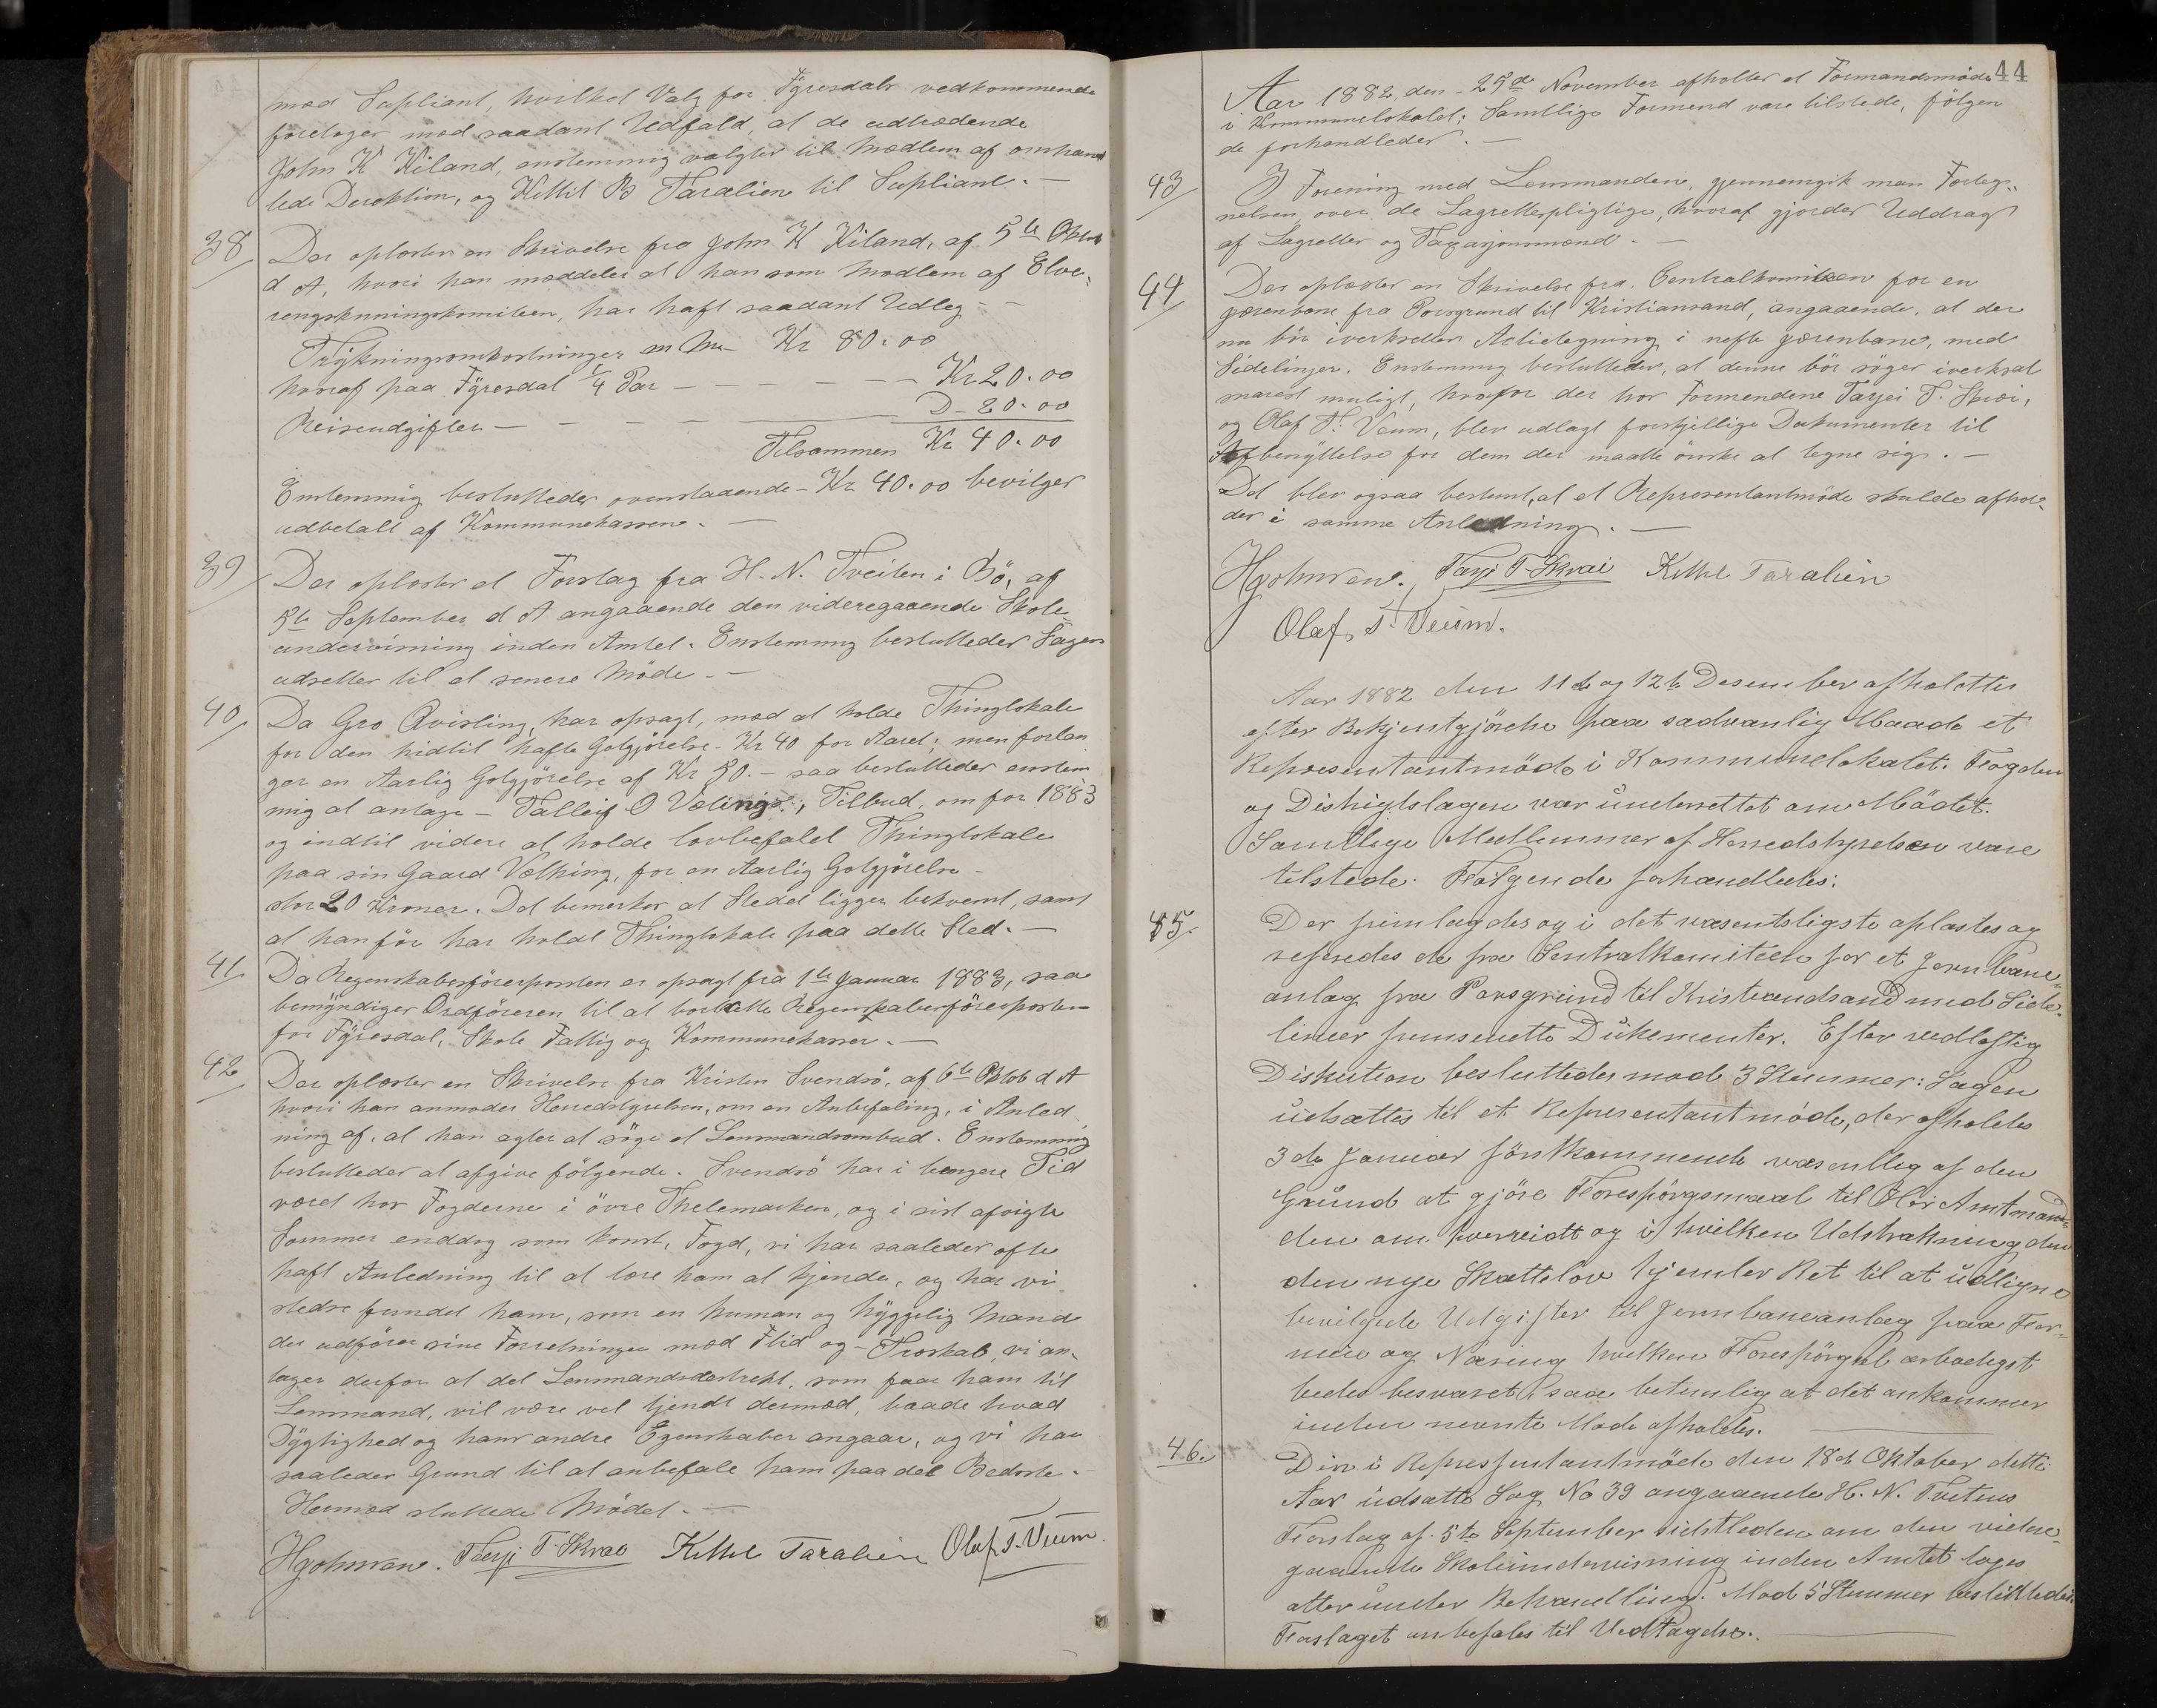 med Supliant, hvilket Valg for Fyresdals vedkommende
foretoges med saadant Udfald, at de udtrædende
John K Kiland, enstemmig valgtes til Medlem af omhand
lede Direktion, og Kittil B Taralien til Supliant. —
38 Der oplæstes en Skrivelse fra John K Kiland, af 5te Oktob
d A, hvori han meddeler at han som Medlem af Elve-
komiteen, har haft saadant Udleg —
Trykningsomkostninger m m — Kr 80.00
hvoraf paa Fyresdal 1/4 Par — Kr 20.00
Reiseudgifter — D- 20.00
Tilsammen Kr 40.00
Enstemmig besluttedes ovenstaaende - Kr 40.00 bevilget
udbetalt af Kommunekassen. —
39 Der oplæstes et Forslag fra H. N. Tveiten i Bö, af
5te September d A angaaende den videregaaende Skole-
undervisning inden Amtet. Enstemmig besluttedes Sagen
udsettes til et senere Möde. —
40 Da Gro Qvisling, har opsagt, med at holde Thinglokale
for den hidtil hafte Gotgjörelse - Kr 40 for Aaret; men forlan
ger en Aarlig Gotgjörelse af Kr 50. — saa besluttedes enstem
mig at antage — Talleif O Tilbud, om for 1883
og indtil videre at holde lovbefalet Thinglokale
paa sin Gaard for en Aarlig Gotgjörelse —
stor 20 Kroner. Det bemerkes at Stedet ligger bekvemt, samt
at han för har holdt Thinglokale paa dette Sted. —
41 Da Regnskabsförerposten er opsagt fra 1te Januar 1883, saa
bemyndiges Ordföreren til at bortsette Regnskabsförerposten
for Fyresdal, Skole Fattig og Kommunekasser. —
42 Der oplæstes en Skrivelse fra Kristen Svendsö, af 6te Oktob d A
hvori han anmoder Herredstyrelsen, om en Anbefaling, i Anled
ning af, at han agter at söge et Lensmandsombud. Enstemmig
besluttedes at afgive fölgende. Svendsö har i længere Tid
været hos Fogderne i övre Thelemarken, og i sist afvigte
Sommer enddog som konst, Fogd, vi har saaledes ofte
haft Anledning til at lære ham at kjende, og har vi
stedse fundet ham, som en human og hyggelig Mand
der udförer sine Forretninger med Flid og — Troskab, vi an-
tager derfor at det Lensmandsdistrikt, som faar ham til
Lensmand, vil være vel tjendt dermed, baade hvad
Dygtighed og hans andre Egenskaber angaar, og vi har
saaledes Grund til at anbefale ham paa det Bedste. —
Hermed sluttede Mödet. —
Hgohnsen. Tarje T. Skræi Kittil Taralien Olaf T. Veum.
44
Aar 1882, den 25de November afholtes et Formandsmöde
i Kommunelokalet; Samtlige Formend vare tilstede, fölgen
de forhandledes. —
43 I Forening med Lensmanden, gjennemgik man Forteg-
nelsen over de Lagrettepligtige, hvoraf gjordes Uddrag
af Lagretter og Taxasjonsmænd. —
44 Der oplæstes en Skrivelse fra Centralkomiteen for en
jærenbane fra Porsgrund til Kristiansand, angaaende, at der
nu bör iverksettes Actietegning i nefte jærenbane, med
Sidelinjer. Enstemmig besluttedes, at denne bör söges iverksat
snarest muligt, hvorfor der hos Formendene Tarjei T. Skræi,
og Olaf T. Veum, blev udlagt forskjellige Dokumenter til
Afbenyttelse for dem der maatte önske at tegne sig. —
Det blev ogsaa bestemt, at et Representantmöde skulde afhol-
des i samme Anledning. —
Hgohnsen. Tarje T. Skræi Kittil Taralien
Olaf T. Veum.
Aar 1882 den 11te og 12te Desember afholdtes
efter Bekjentgjörelse paa sedvanlig Maade et
Representantmöde i Kommunelokalet. Fogden
og Distriktslægen var underrettet om Mödet.
Samtlige Medlemmer af Herredstyrelsen vare
tilstede. Fölgende forhandledes:
45. Der fremlagdes og i det væsentsligste oplæstes og
refereredes de fra Sentralkomiteen for et Jernbane-
anlæg fra Porsgrund til Kristiandsand med Side-
linier fremsendte Dukementer. Efter vedlöftig
Diskution besluttedes mod 3 Stemmer: Sagen
udsættes til et Representantmöde, der afholdes
3de Januar förstkommende væsentlig af den
Grund at gjöre Forespörgsmaal til Hr Amtmand-
den om hvorvidt og i hvilken Udstrækning den
den nye Skattelov hjemler Ret til at udligne
bevilgede Udgifter til Jernbaneanlæg paa For-
mue og Næring hvilken Forespörgsel ærbødigst
bedes besvaret saa betimelig at det ankommer
inden nevnte Möde afholdes. —
46. Den i Representantmöde den 18de Oktober dette
Aar udsatte Sag No 39 angaaende H. N. Tvetens
Forslag af 5te September sidstleden om den videre-
gaaende Skoleundervisning inden Amtet toges
atter under Behandling. Mod 5 Stemmer besluttedes:
Forslaget anbefales til Vedtagelse. —